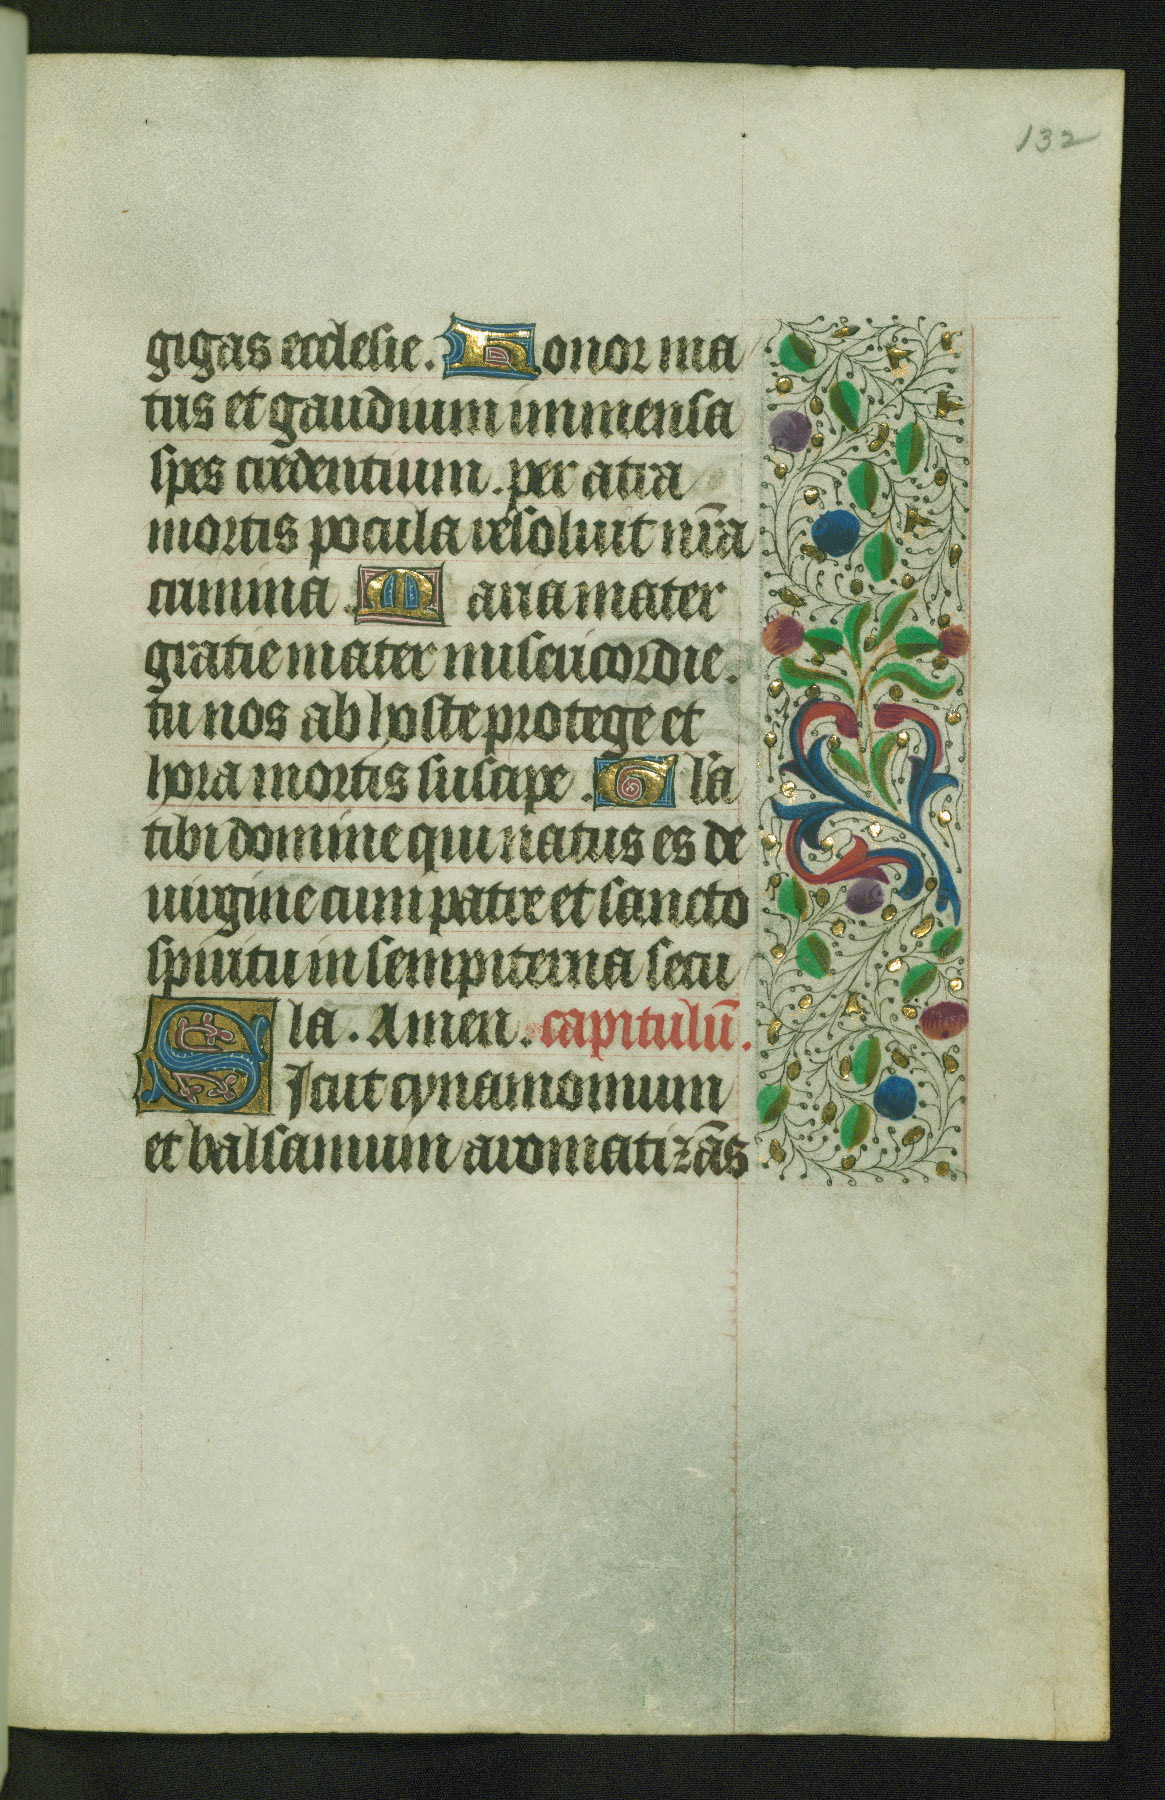 132
gigas ecclesie. Honor ma
tris et gaudium immensa
spes credentium. per atra
mortis pocula resoluit nr̄a
crimina. Maria mater
gratie mater misericordie.
tu nos ab hoste protege et
hora mortis suscipe. Gl̄a
tibi domine qui natus es de
uirgine cum patre et sancto
spiritu in sempiterna secu
la. Amen. capitulū.
Sicut cynamomum
et balsamum aromatizās